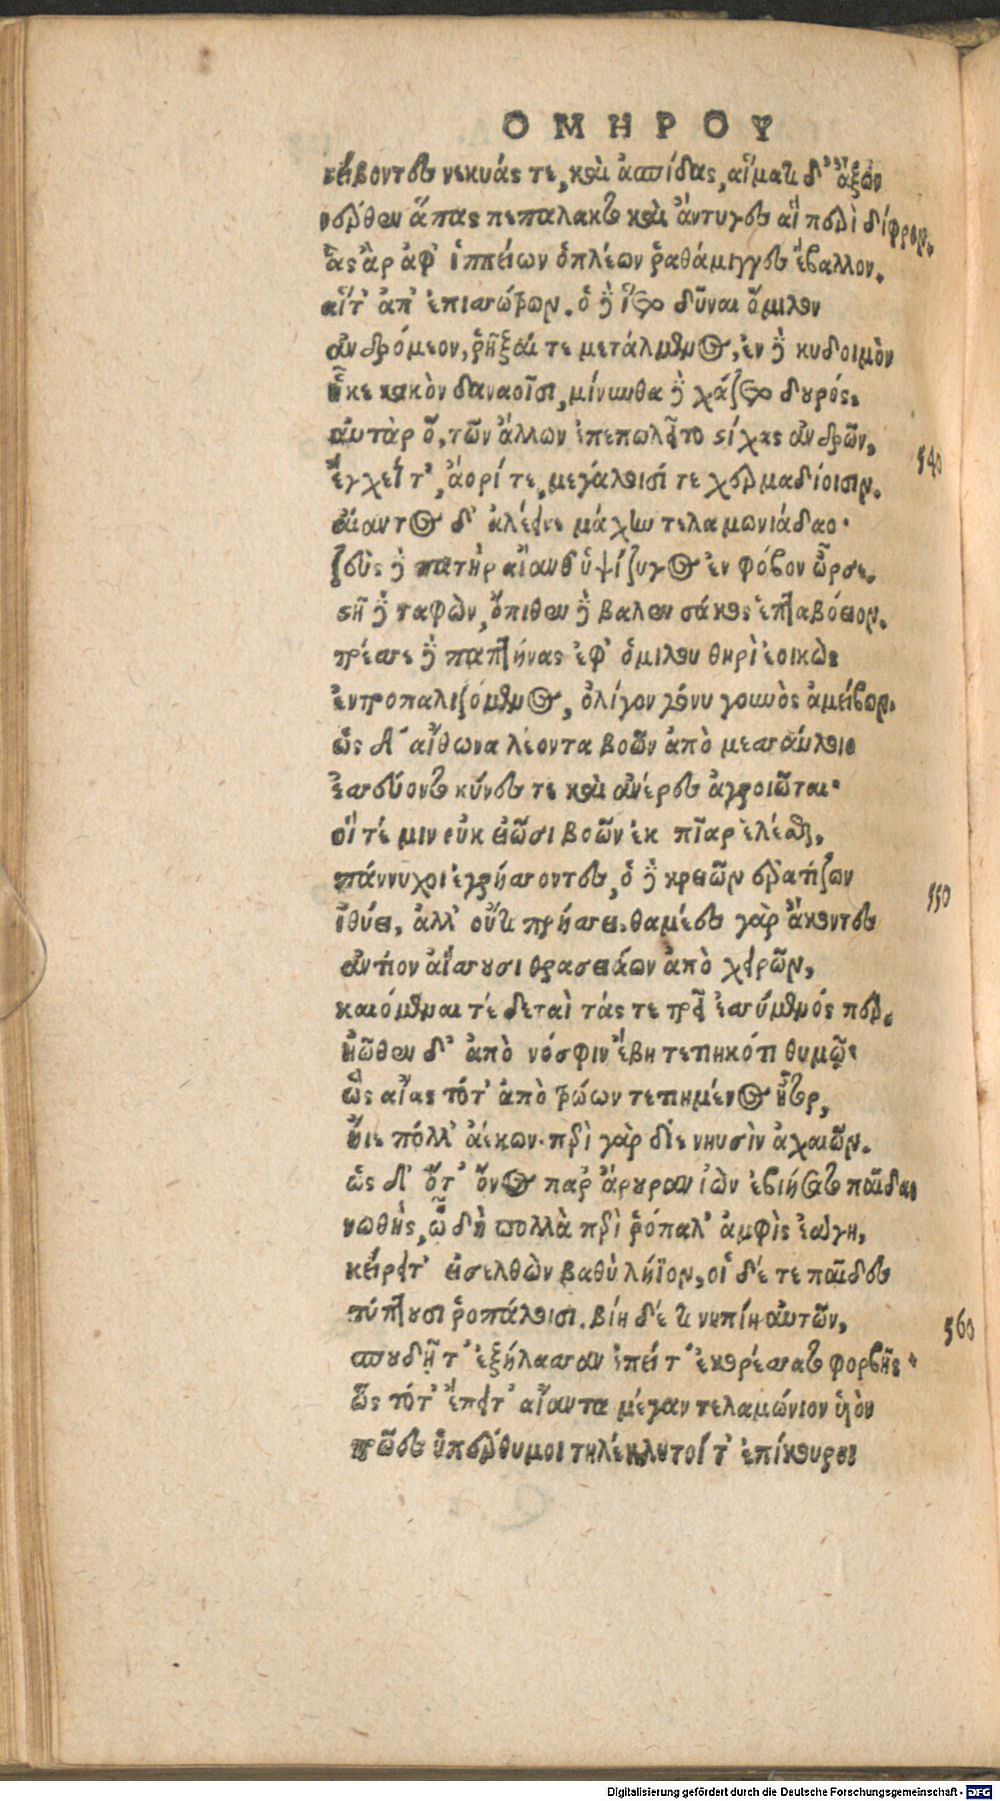 ΟΜΗΡΟΥ
τείβοντες νεκυάς τε, καὶ ἀσπίδας, αἵματι δ' ἄξων
νέρθεν ἅπας πεπαλακτο καὶ ἄντυγες αἳ περὶ δίφρον.
ἃς ἂρ ἀφ' ἱππείων ὁπλέων ῥαθάμιγγες ἔβαλλον.
αἵτ' ἀπ' ἐπισσώτρων. ὁ δὲ ἵετο δῦναι ὅμιλον
ἀνδρόμεον, ῥῆξαί τε μετάλμενος, ἐν δὲ κυδοιμὸν
ἧκε κακὸν δαναοῖσι, μίνυνθα δὲ χάζετο δουρός.
αὐτὰρ ὅ, τῶν ἄλλων ἐπεπωλεῖτο στίχας ἀνδρῶν, 540
ἔγχεΐ τ', ἄορί τε, μεγάλοισί τε χερμαδίοισιν.
αἴαντος δ' ἀλέεινε μάχην τελαμωνιάδαο·
ζεὺς δὲ πατὴρ αἴανθ' ὑψίζυγος ἐν φόβον ὦρσε.
στῆ δὲ ταφὼν, ὄπιθεν δὲ βαλεν σάκος ἑπταβόειον.
τρέσσε δὲ παπτήνας ἐφ' ὁμίλου θηρὶ ἐοικὼς
ἐντροπαλιζόμενος, ὀλίγον γόνυ γουνὸς ἀμείβων.
ὡς δ' αἴθωνα λέοντα βοῶν ἀπὸ μεσσαύλοιο
ἐσσεύοντο κύνες τε καὶ ἀνέρες ἀγροιῶται·
οἵ τέ μιν οὐκ εἰῶσι βοῶν ἐκ πῖαρ ἑλέσθαι,
πάννυχοι ἐγρήσσοντες, ὁ δὲ κρειῶν ἐρατίζων 550
ἰθύει, ἀλλ' οὔτι πρήσσει. θαμέες γὰρ ἄκοντες
ἀντίον ἀΐσσουσι θρασειάων ἀπὸ χειρῶν,
καιόμεναι τέ δεταὶ τάς τε τρεῖ ἐσσύμενός περ.
ἠῶθεν δ' ἀπὸ νόσφιν ἔβη τετιηκότι θυμῷ·
ὣς αἴας τότ' ἀπὸ τρώων τετιημένος ἦτορ,
ἤιε πόλλ' ἀέκων. περὶ γὰρ δίε νηυσὶν ἀχαιῶν.
ὡς δ' ὅτ' ὄνος παρ' ἄρουραν ἰὼν ἐβιήσατο παῖδας
νωθὴς, ᾧ δὴ πολλὰ περὶ ῥόπαλ' ἀμφὶς ἐάγη,
κείρει τ' εἰσελθὼν βαθὺ λήϊον, οἱ δέ τε παῖδες
τύπτουσι ῥοπάλοισι. βίη δέ τι νηπίη αὐτῶν, 560
σπουδῇ τ' ἐξήλασσαν ἐπεί τ' ἐκορέσσατο φορβῆς·
ὣς τότ' ἔπειτ' αἴαντα μέγαν τελαμώνιον υἱὸν
τρῶες ὑπέρθυμοι τηλέκλυτοί τ' ἐπίκουροι
Digitalisierung gefördert durch die Deutsche Forschungsgemeinschaft - DFG